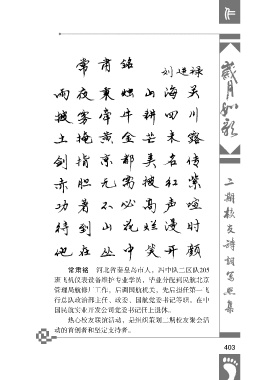 常肃铭
刘进禄
雨夜裹烛山海关
披雾牵牛耕四川
土掩黄金芒未露
剑指京都美名传
赤胆无需披红紫
功著不必高声喧
待到山花烂漫时
他在丛中笑开颜
常肃铭 河北省秦皇岛市人，四中队二区队205
班飞机仪表设备维护专业学员，毕业分配到民航北京
管理局维修厂工作，后调国航机关，先后担任第一飞
行总队政治部主任、政委、国航党委书记等职。在中
国民航实业开发公司党委书记任上退休。
热心校友联谊活动，是组织策划二期校友聚会活
动的首创者和坚定支持者。
岁月如歌
二期校友诗词写照集
403